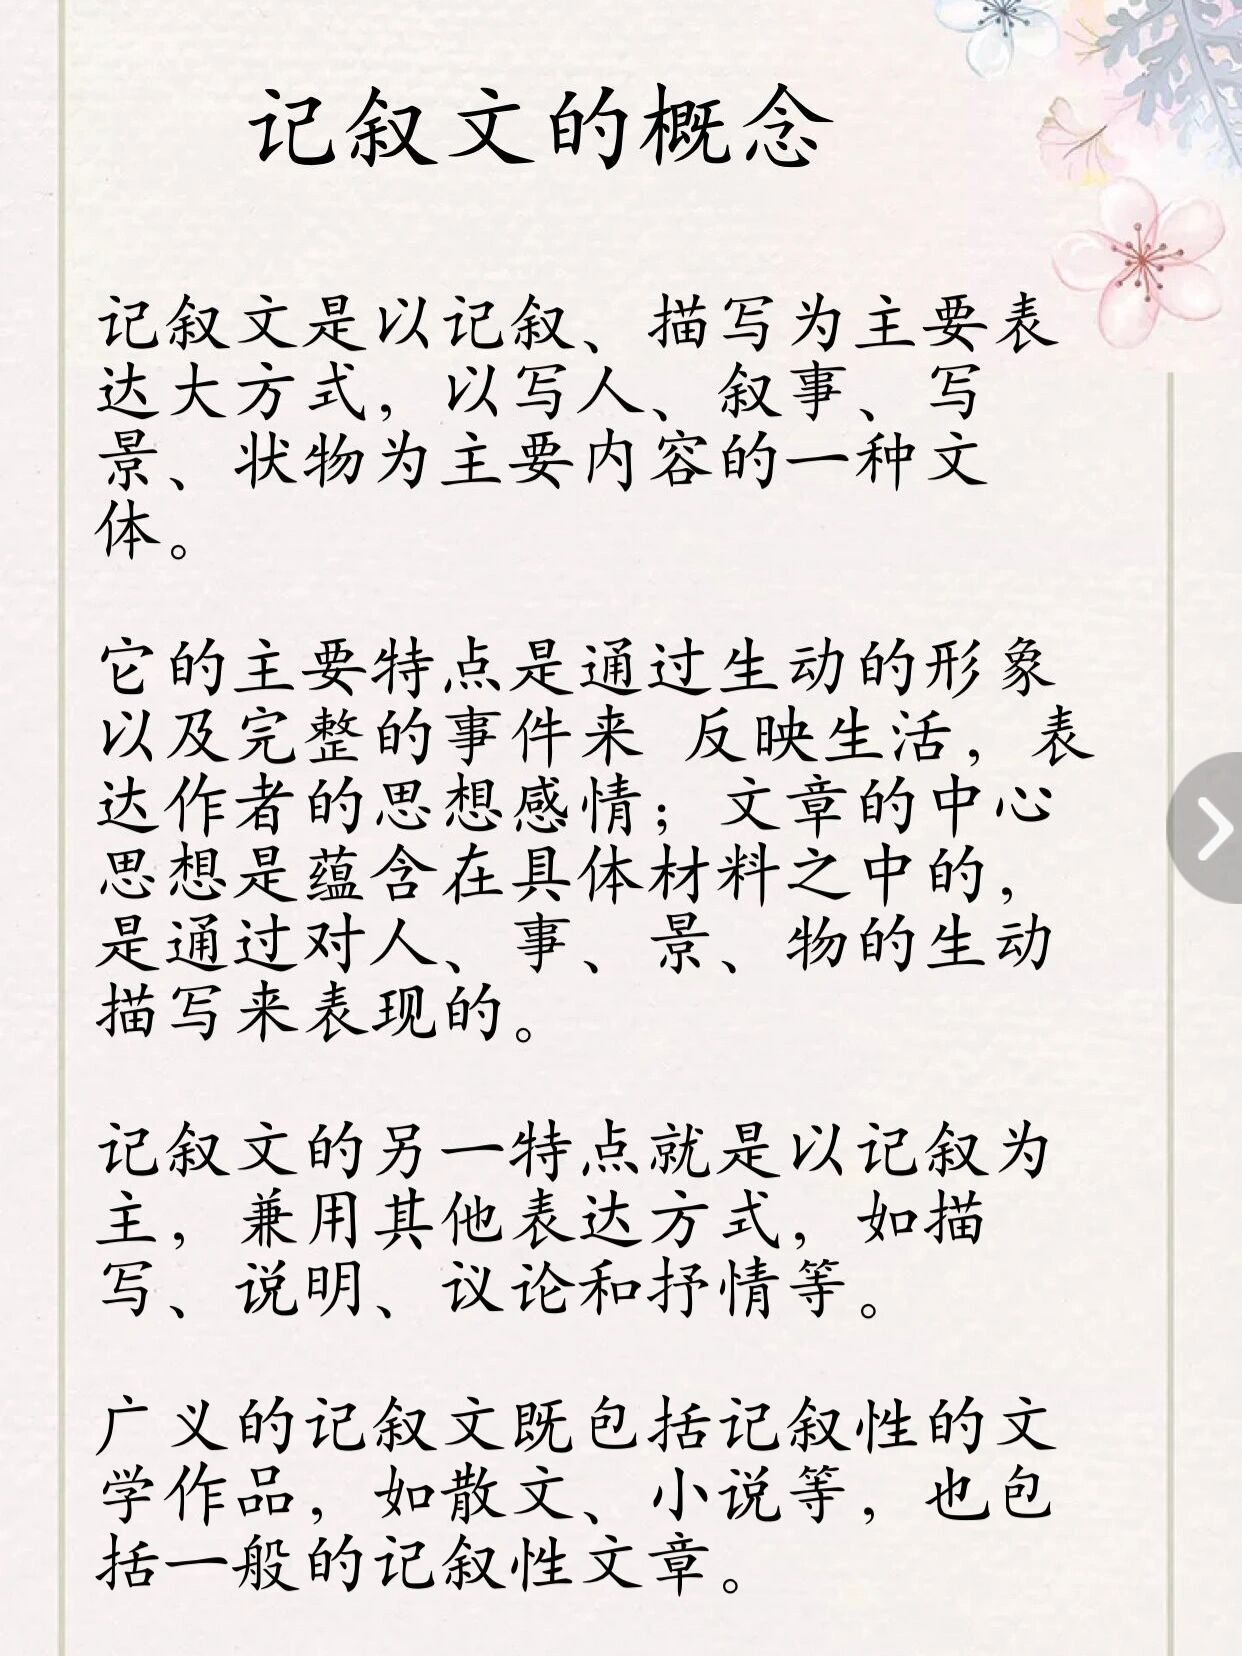 记叙文的概念
记叙文是以记叙、描写为主要表
达大方式，以写人、叙事、写
景、状物为主要内容的一种文
体。
它的主要特点是通过生动的形象
以及完整的事件来 反映生活，表
达作者的思想感情；文章的中心
思想是蕴含在具体材料之中的，
是通过对人、事、景、物的生动
描写来表现的。
记叙文的另一特点就是以记叙为
主，兼用其他表达方式，如描
写、说明、议论和抒情等。
广义的记叙文既包括记叙性的文
学作品，如散文、小说等，也包
括一般的记叙性文章。